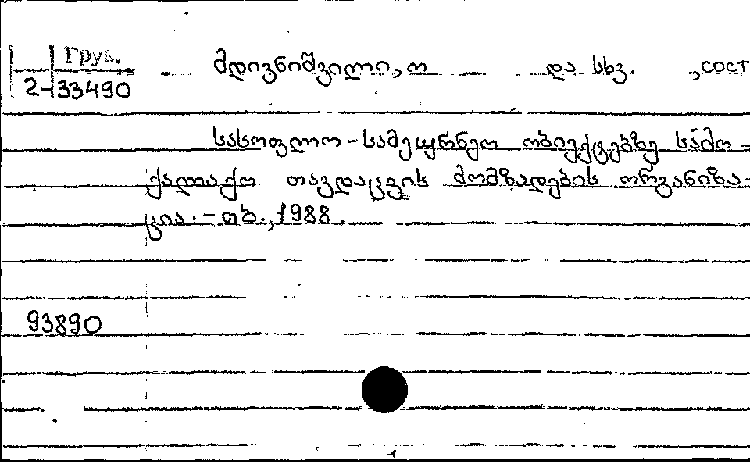 Груз.
2-33490
მდივნიშვილი, ო და სხვ. , сост
სასოფლო-სამეურნეო ობიექტებზე სამო-
ქალაქო თავდაცვის მომზადების ორგანიზა-
ცია. - თბ., 1988.
93890